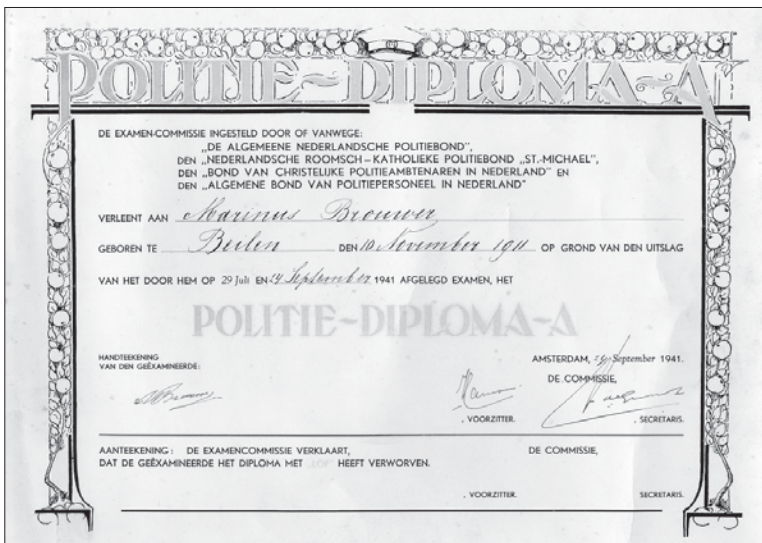 POLITIE~DIPLOMA-A
DE EXAMEN-COMMISSIE INGESTELD DOOR OF VANWEGE:
„DE ALGEMEENE NEDERLANDSCHE POLITIEBOND",
DEN „NEDERLANDSCHE ROOMSCH-KATHOLIEKE POLITIEBOND „ST.-MICHAEL",
DEN „BOND VAN CHRISTELIJKE POLITIEAMBTENAREN IN NEDERLAND" EN
DEN „ALGEMENE BOND VAN POLITIEPERSONEEL IN NEDERLAND"
VERLEENT AAN Marinus Brouwer
GEBOREN TE Beilen DEN 10 November 1911 OP GROND VAN DEN UITSLAG
VAN HET DOOR HEM OP 29 Juli EN September 1941 AFGELEGD EXAMEN, HET
POLITIE~DIPLOMA-A
HANDTEEKENING
VAN DEN GEËXAMINEERDE:
AMSTERDAM, September 1941.
DE COMMISSIE,
, VOORZITTER. , SECRETARIS.
AANTEEKENING: DE EXAMENCOMMISSIE VERKLAART, DE COMMISSIE,
DAT DE GEËXAMINEERDE HET DIPLOMA MET „LOF" HEEFT VERWORVEN.
, VOORZITTER. SECRETARIS.